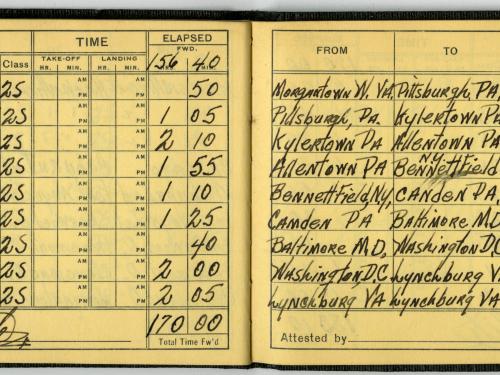 TIME ELAPSED
FWD.
Class TAKE-OFF LANDING 156 40
HR. MIN. HR. MIN.
FROM TO
2S AM AM 50 Morgantown W. VA. Pittsburgh, PA.
PM PM
2S AM AM 1 05 Pittsburgh, PA. Kylertown PA
PM PM
2S AM AM 2 10 Kylertown PA Allentown PA
PM PM
2S AM AM 1 55 Allentown PA Bennett Field N.Y.
PM PM
2S AM AM 1 10 Bennett Field, N.Y. Camden PA.
PM PM
2S AM AM 1 25 Camden PA Baltimore M.D.
PM PM
2S AM AM 40 Baltimore M.D. Washington D.C
PM PM
2S AM AM 2 00 Washington, D.C Lynchburg VA
PM PM
2S AM AM 2 05 Lynchburg VA Lynchburg VA
PM PM
170 00
Total Time Fw'd
Attested by